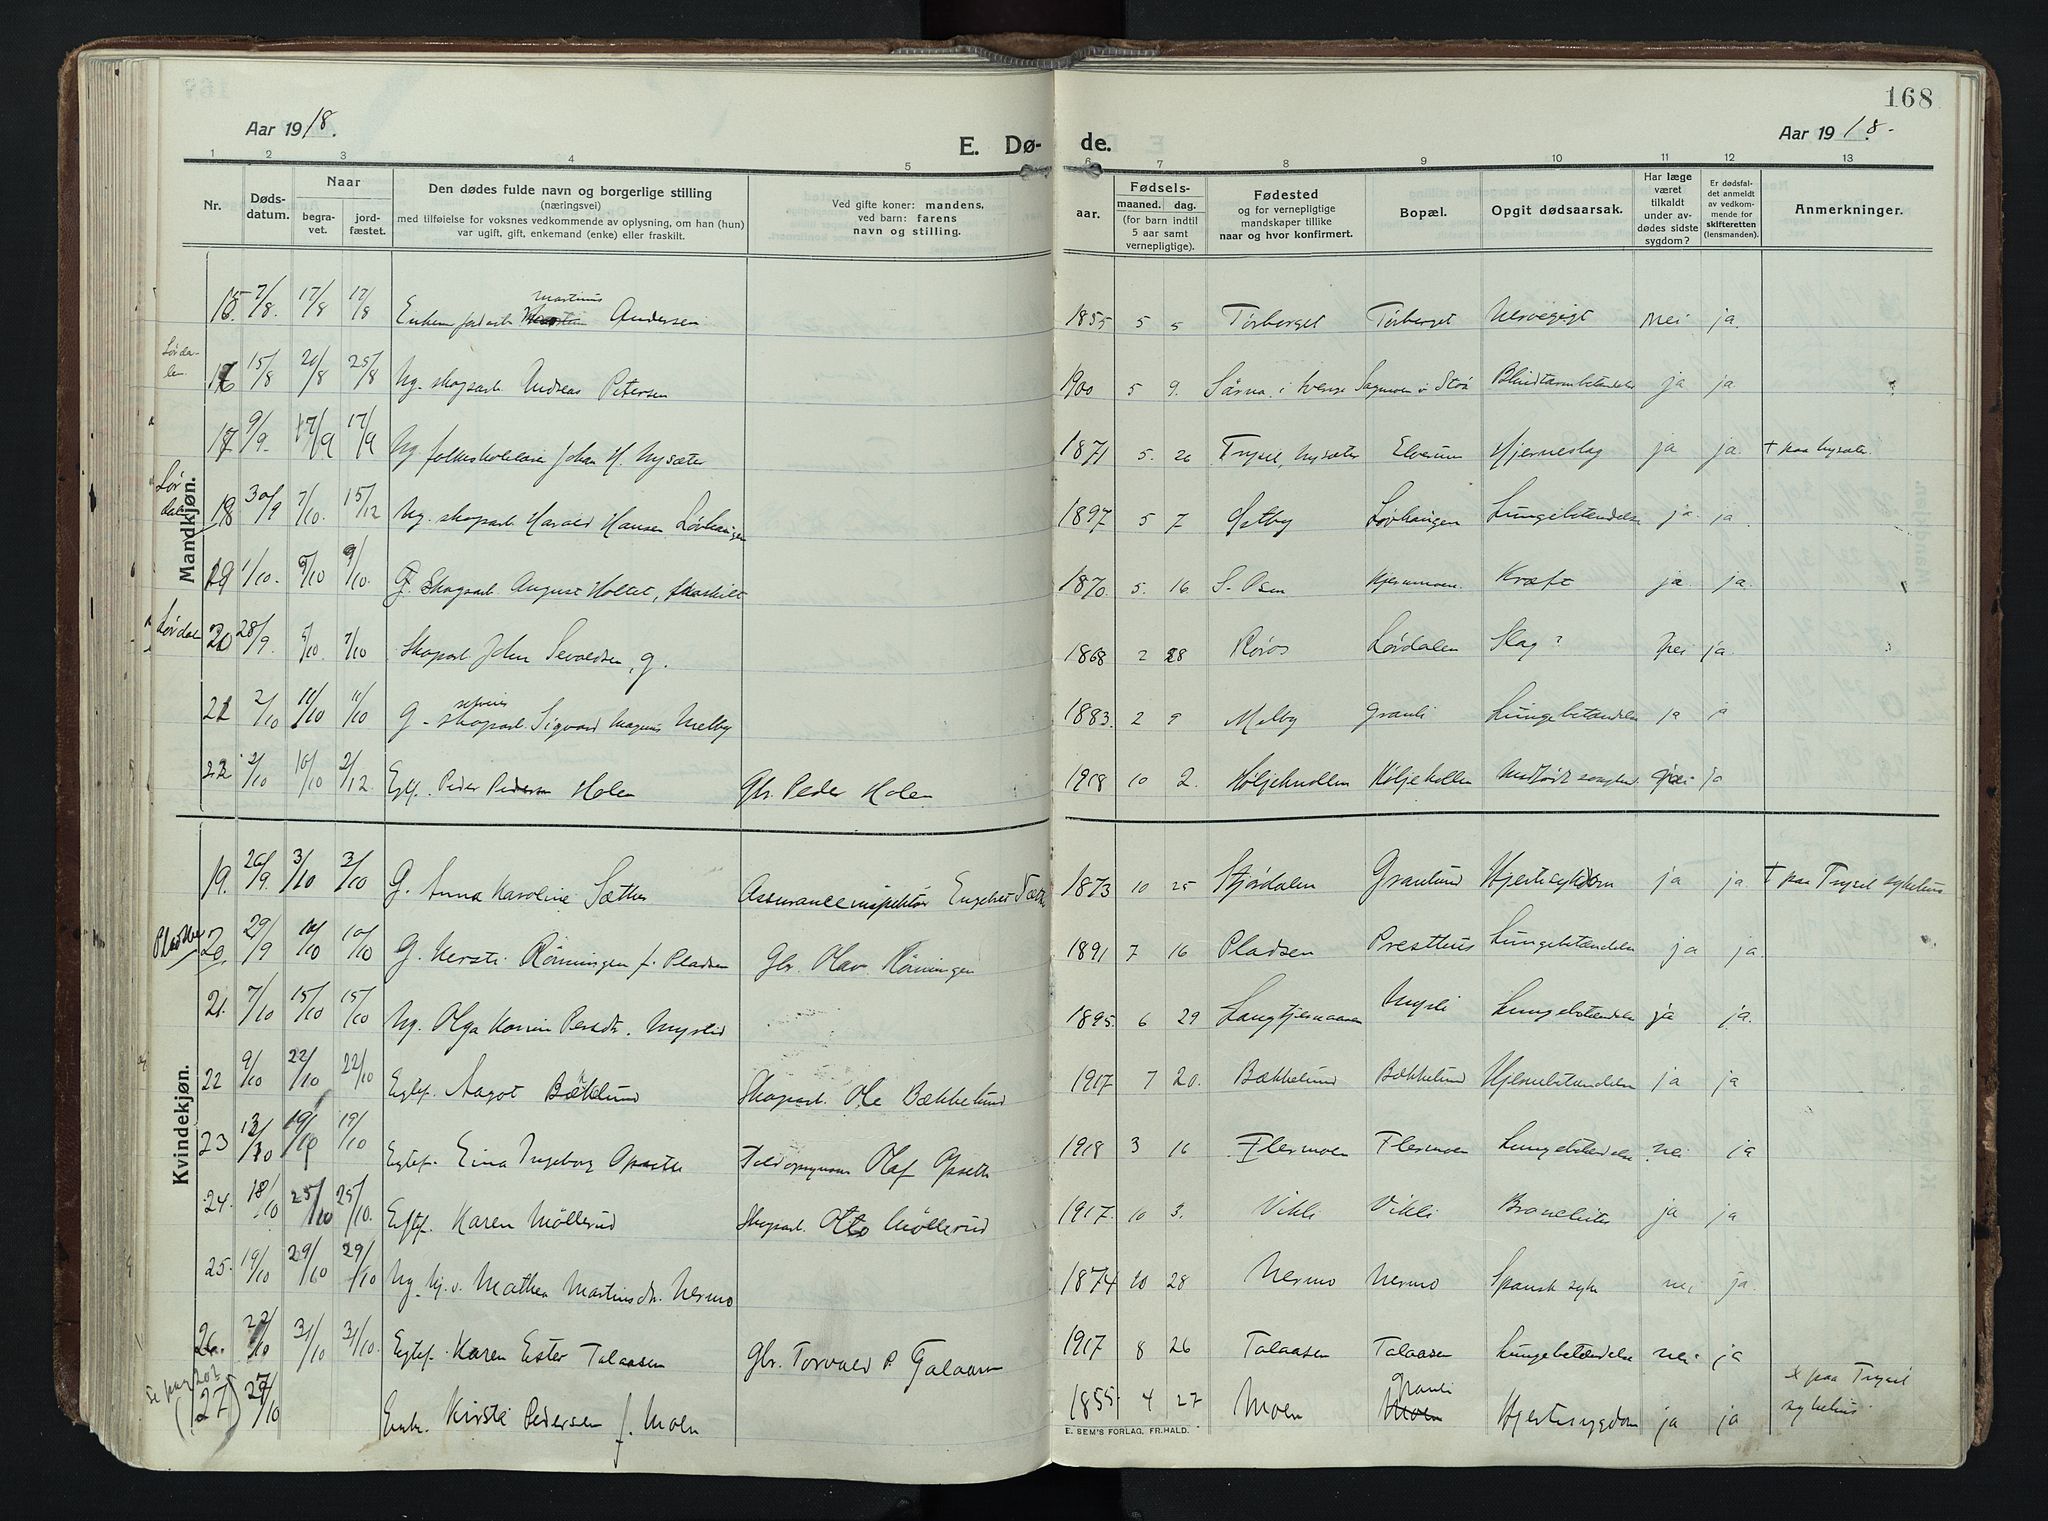 168
Aar 1918.
Aar 1918.
E. Dø- de.
1 2 3 4 5 6 7 8 9 10 11 12 13
Nr. Døds-datum. Naar begra-vet. jord-fæstet. Den dødes fulde navn og borgerlige stilling (næringsvei) med tilføielse for voksnes vedkommende av oplysning, om han (hun) var ugift, gift, enkemand (enke) eller fraskilt. Ved gifte koner: mandens, ved barn: farens navn og stilling. Fødsels- aar. maaned. dag. (for barn indtil 5 aar samt vernepligtige). Fødested og for vernepligtige mandskaper tillike naar og hvor konfirmert. Bopæl. Opgit dødsaarsak. Har læge været tilkaldt under av-dødes sidste sygdom? Er dødsfal-det anmeldt av vedkom-mende for skifteretten (lensmanden). Anmerkninger.
Mandkjøn.
15. 7/8. 17/8 17/8 Martinus Andersen 1855 5 5 Törberget Törberget Nervegigt nei ja.
Lørda-len. 16 15/8 20/8 25/8 Ug. skogsarb. Andreas Petersen 1900 5 9. Särna i Sverige Sagmoen i Støa Blindtarmbetændelse ja ja
17 9/9. 17/9 17/9 Ug. folkeskolelærer Johan H. Nysæter 1871 5. 26 Trysil, Nysæter Elverum Hjerneslag ja ja. + paa Nysæter.
Lør dal 18 30/9 7/10. 15/12 Ug. skogarb. Harald Hansen Løvhaugen 1897 5 7 Løvhaugen Lungebetændelse ja ja
19 1/10. 9/10 9/10. G. Skogsarb. August Holtet, fraskilt 1870. 5. 16. S. Osen Kræft ja ja.
Lørdal 20 28/9. 7/10 Skogarb. John Sevaldsen, g. 1868 2 28 Røros Lørdalen Slag? nei ja.
21 2/10 11/10 11/10 G. skogarb. Sigvard Magnus Melby 1883. 2 9 Melby Granli Lungebetændelse ja ja
22 2/10 10/10 2/12. Egtf. Peder Pedersen Holen Gbr. Peder Holen 1918 10 2. nei ja
Kvindekjøn.
19. 26/9. 3/10 3/10 G. Anna Karoline Sæther Assuranceinspektør Engebret Sæther 1873 10 25 Stjørdalen Granlund Hjertesygdom ja ja + paa Trysil sykehus
20. 29/9 10/10 10/10 G. Kersti Rönningen f. Pladsen Gbr. Olav Rönningen 1891 7 16 Pladsen Presthus Lungebetændelse ja ja.
21. 7/10 15/10 15/10 Ug. Olga Karine Persdtr. Myrlid 1895. 6 29 Langtjernaasen Myrli Lungebetændelse ja ja.
22 9/10 22/10 22/10 Egtef. Aagot Bækkelund Skogarb. Ole Bækkelund 1917 7 20. Bækkelund Bækkelund Hjernebetændelse ja ja
23 12/10 19/10 19/10 Egtef. Eina Ingeborg Opsæth Toldopsynsm Olaf Opsæth 1918 3 16 Flermoen Flermoen Lungebetændelse nei ja
24. 18/10 25/10 25/10. Egtf. Karen Möllerud Skogarb. Otto Möllerud 1917. 10 3. Vikli Vikli Bronchites ja ja
25. 19/10 29/10 29/10 Ug. Mathea Martinsdtr. Nermo 1874 10 28 Nermo Nermo Spansk syke nei ja.
26. 22/10 31/10 31/10. Egtef. Karen Ester Talaasen Gbr. Torvald P. Talaasen 1917 8 26 Talaasen Talaasen Lungebetændelse nei ja
se pag 202 (27) 27/10 Enke. Kirsti Pedersen f. Moen 1855 4 27 Moen Granli Moen Hjertesygdom ja ja + paa Trysil sykehus
E. SEM'S FORLAG, FR.HALD.